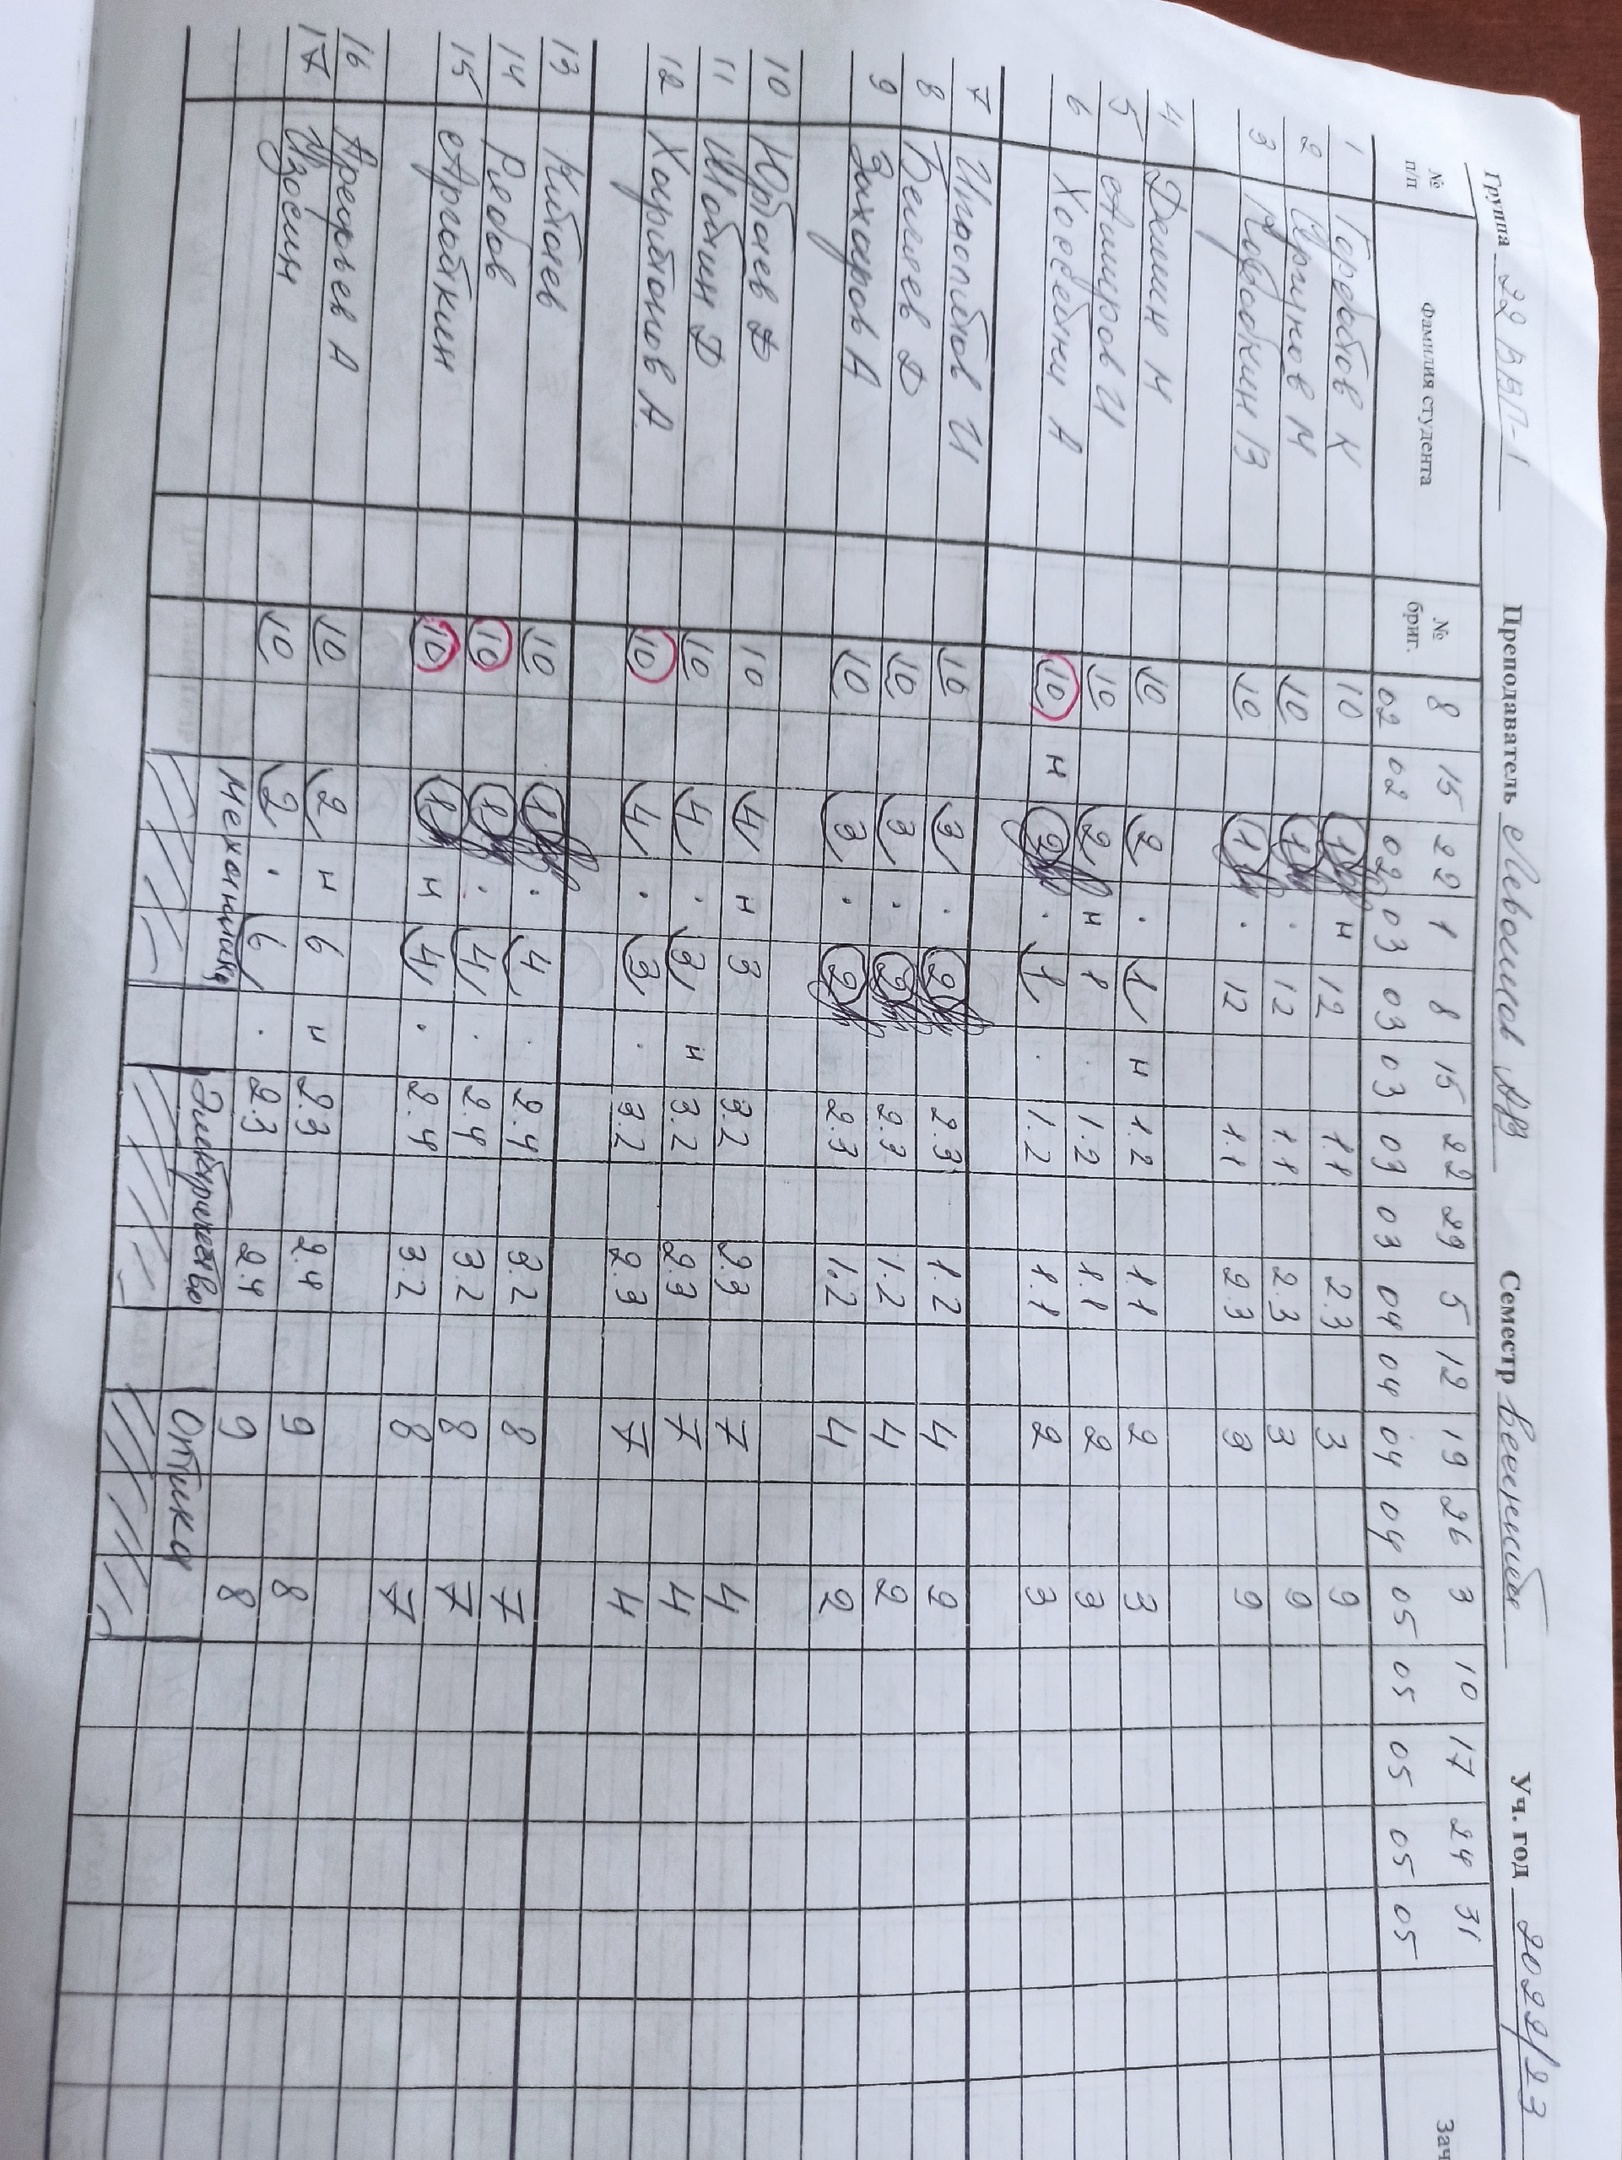 Группа 22ВВП-1 Преподаватель Семестр весенний Уч. год 2022/23
№ п/п Фамилия студента № бриг. 8 02 15 02 22 02 1 03 8 03 15 03 22 03 29 03 5 04 12 04 19 04 26 04 3 05 10 05 17 05 24 05 31 05 Зач
1 Горбатов К 10 1 н 12 1.1 2.3 3 9
2 Аргунов М 10 1 · 12 1.1 2.3 3 9
3 Коробкин В 10 1 · 12 1.1 2.3 3 9
4 Демин М 10 2 · 1 н 1.2 1.1 2 3
5 Амиров И 10 2 н 1 · 1.2 1.1 2 3
6 Хоссейни А 10 н 2 · 1 · 1.2 1.1 2 3
7 И 10 3 · 2 2.3 1.2 4 2
8 Беляев Д 10 3 · 2 2.3 1.2 4 2
9 Захаров А 10 3 · 2 2.3 1.2 4 2
10 Юртаев Д 10 4 н 3 3.2 2.3 7 4
11 Д 10 4 · 3 н 3.2 2.3 7 4
12 Харитонов А. 10 4 · 3 · 3.2 2.3 7 4
13 Китаев 10 1 · 4 · 2.4 3.2 8 7
14 Рябов 10 1 · 4 · 2.4 3.2 8 7
15 10 1 н 4 · 2.4 3.2 8 7
16 Арефьев А 10 2 н 6 н 2.3 2.4 9 8
17 Изосин 10 2 · 6 · 2.3 2.4 9 8
Механика Электричество Оптика